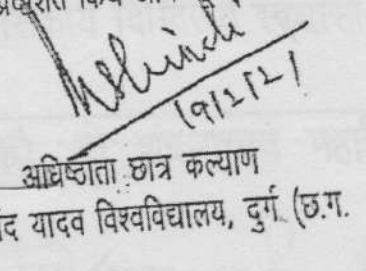 किये
19/2/21
अधिष्ठाता छात्र कल्याण
यादव विश्वविद्यालय, दुर्ग (छ.ग.